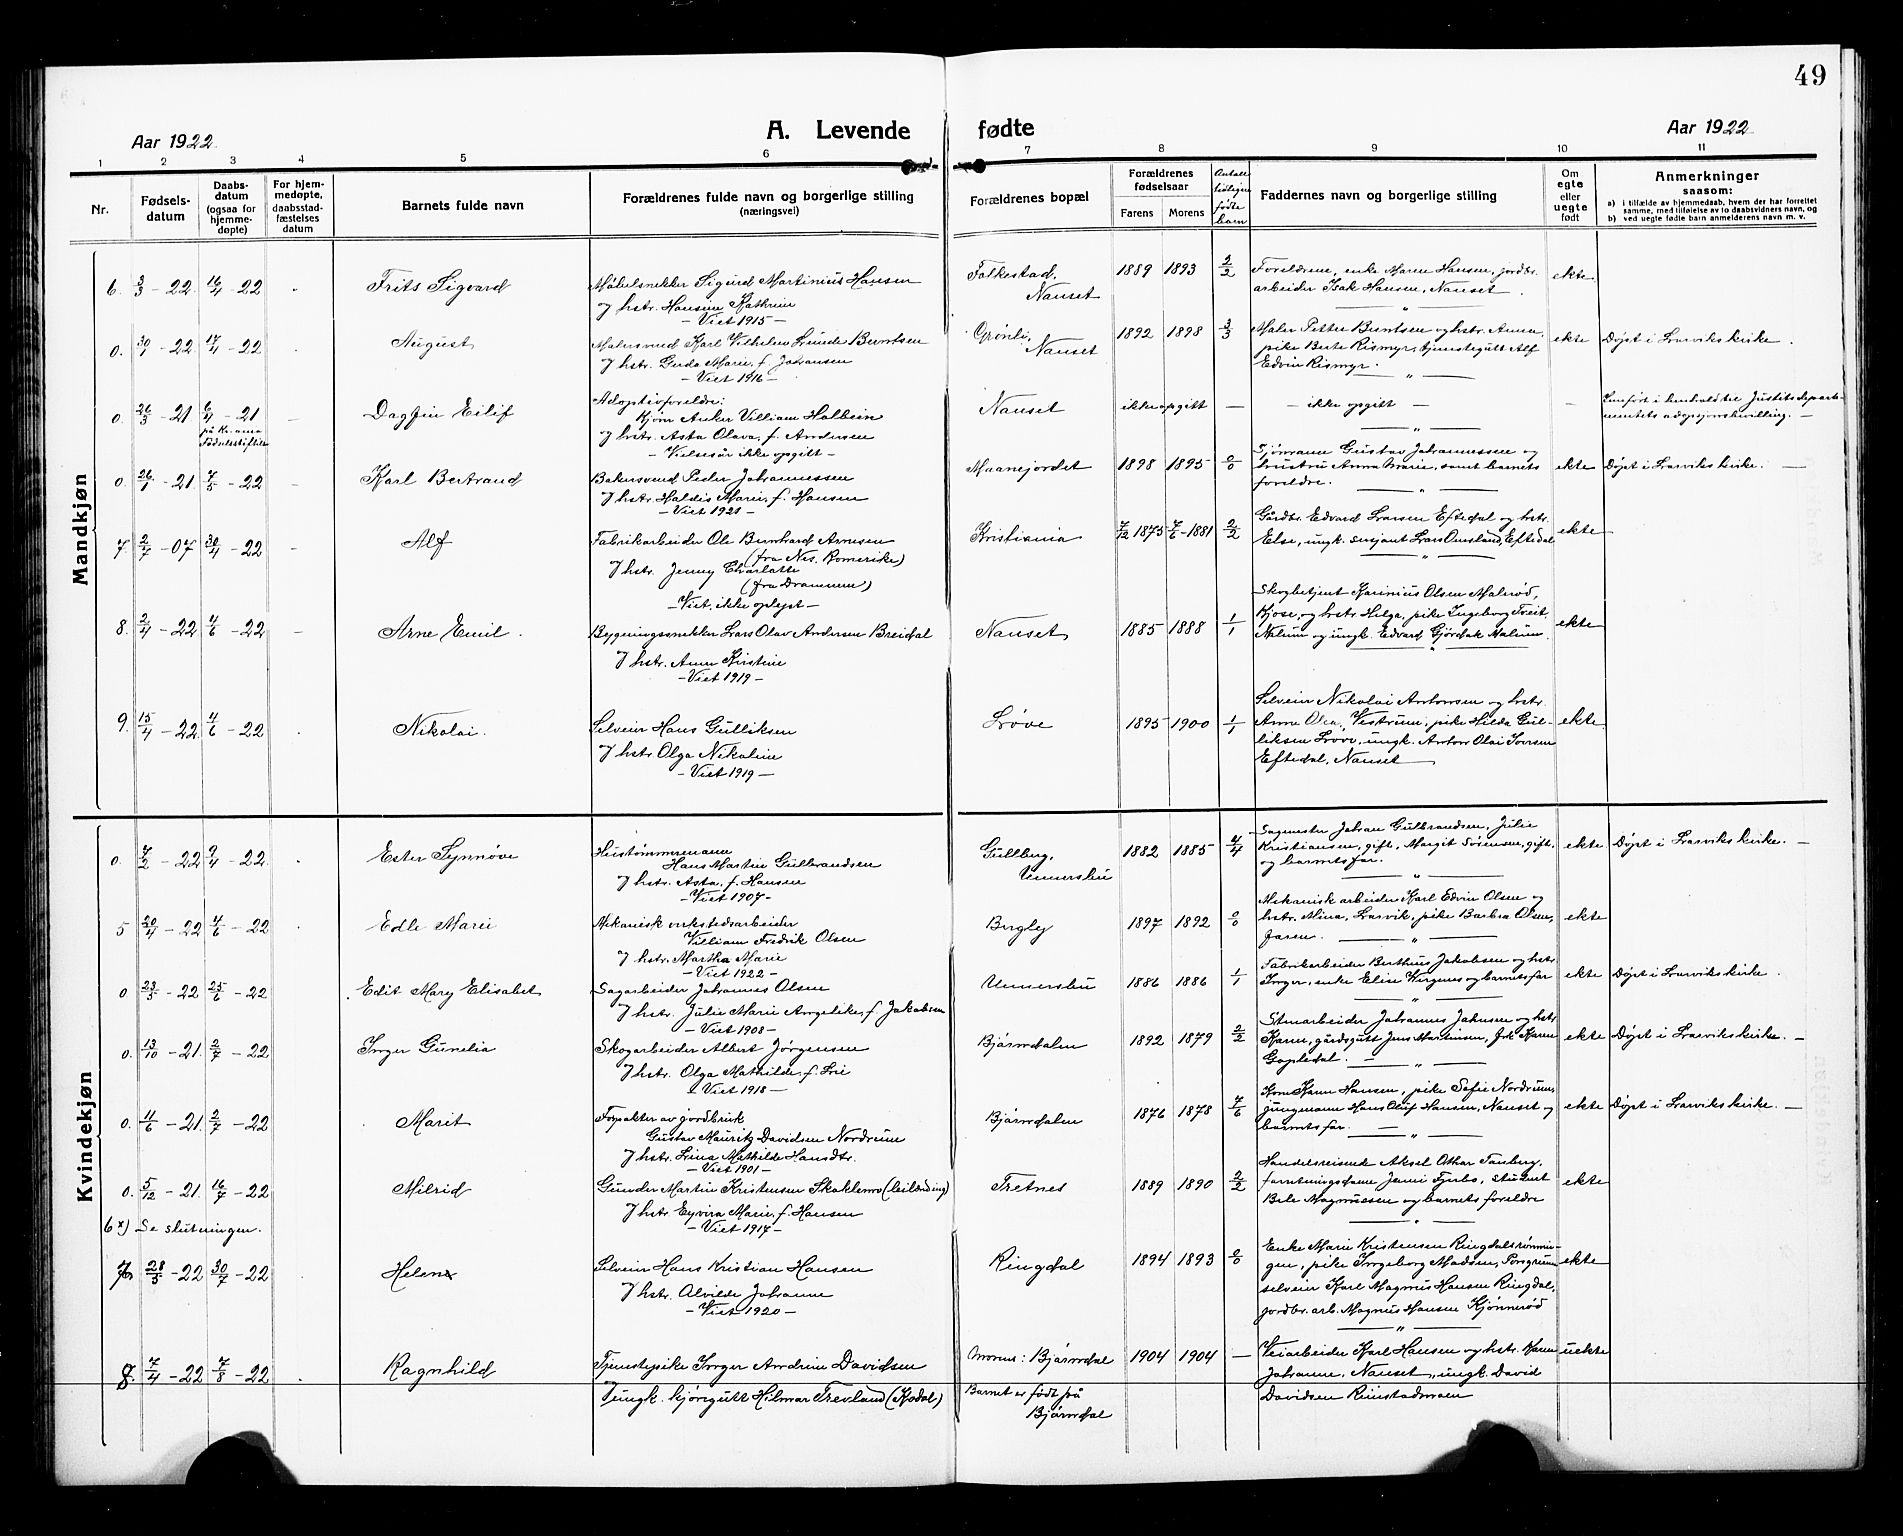 49
Aar 1922.
A. Levende fødte
Aar 1922
1 2 3 4 5 6 7 8 9 10 11
Nr.
Fødsels-
datum
Daabs-
datum
(ogsaa for
hjemme-
døpte)
For hjem-
medøpte,
daabsstad-
fæstelses
datum
Barnets fulde navn
Forældrenes fulde navn og borgerlige stilling
(næringsvei)
Forældrenes bopæl
Forældrenes
fødselsaar
Farens Morens
Antall
tidligere
fødte
barn
Faddernes navn og borgerlige stilling
Om
egte
eller
uegte
født
Anmerkninger
saasom:
a) i tilfælde av hjemmedaab, hvem der har forrettet
samme, med tilføielse av to daabsvidners navn, og
b) ved uegte fødte barn anmelderens navn m. v.
Mandkjøn
6. 3/3 - 22 16/4 - 22 Frits Sigvard
Møbelsnekker Sigurd Martinius Hansen
og hstr. Hansine Kathrine
- Viet 1915 -
Falkestad,
Nanset
1889 1893 2/2
Foreldrene, enke Maren Hansen, jordbr.
arbeider Isak Hansen, Nanset
ekte
0. 30/1 - 22 17/4 - 22 August
Malersvend Karl Vilhelm Lunde Berntsen
og hstr. Gerda Marie, f. Johansen
- Viet 1916 -
Grønli,
Nanset
1892 1898 3/3
Maler Petter Berntsen og hstr. Anna,
pike Berte Rismyr, tjenestegutt Alf
Edvin Rismyr.
ekte Døpt i Larviks kirke.
0. 26/3 - 21 6/4 - 21 Dagfin Eilif
på Kr.ania
Fødselsstiftelse
Adoptivforeldre:
Kjøm. Anker Villiam Holbein
og hstr. Asta Olava, f. Andersen
- Vielsesår ikke opgitt -
Nanset
ikke opgitt - - ikke opgitt - -
Innført i henhold til Justitsdeparte-
mentets adopsjonsbevilling. -
0. 26/1 - 21. 7/5 - 22 Karl Bertrand
Bakersvend Peder Johannessen
og hstr. Haldis Marie, f. Hansen
- Viet 1921 -
Maanejordet
1898 1895 0/0
Sjømann Gustav Johannessen og
hustru Anna Marie, samt barnets
foreldre.
ekte Døpt i Larviks kirke. -
7. 2/7 - 07 30/4 - 22 Alf
Fabrikarbeider Ole Bernhard Arnesen
(fra Nes, Romerike)
og hstr. Jenny Charlotte
(fra Drammen)
- Viet, ikke oplyst -
Kristiania
7/12 1875 7/6 - 1881 2/2
Gårdbr. Edvard Larsen Eftedal og hstr.
Else, ungk. Lars Omsland, Eftedal
ekte
8. 2/4 - 22 4/6 - 22 Arne Emil.
Bygningssnekker Lars Olav Andersen Breidal
og hstr. Anna Kirstine
- Viet 1919 -
Nanset
1885 1888 1/1
Skogbetjent Karinius Olsen Malerød,
Kjose, og hstr. Helga, pike Ingeborg Treit,
Nalum og ungk. Edvard Gjordak Nalum.
ekte
9. 15/4 - 22 4/6 - 22 Nikolai.
Selveier Hans Gulliksen
og hstr. Olga Nikoline
- Viet 1919 -
Løve
1895 1900 1/1
Selveier Nikolai Antonsen og hstr.
Anna Olea, Vestrum, pike Hilda Gul-
liksen Løve, ungk. Anton Olai Iversen
Eftedal, Nanset
ekte.
Kvindekjøn
0. 7/2 - 22 9/4 - 22. Ester Synnøve
Hustømmermann
Hans Martin Gulbrandsen
og hstr. Asta, f. Hansen
- Viet 1907 -
Gullberg,
Unnersbu
1882 1885 4/4
Sagmester Johan Gulbrandsen, Julie
Kristiansen, gift, Margit Sørensen, gift,
og barnets far.
ekte Døpt i Larviks kirke. -
5 20/4 - 22 4/6 - 22 Edle Marie
Mekanisk verkstedsarbeider
Villiam Fredrik Olsen
og hstr. Martha Marie
- Viet 1922 -
Bergly
1897 1892 0/0
Mekanisk arbeider Karl Edvin Olsen og
hstr. Mina, Larvik, pike Barbra Olsen,
faren.
ekte
0. 23/3 - 22 25/6 - 22 Edit Mary Elisabet
Sagarbeider Johannes Olsen
og hstr. Julie Marie Angelike, f. Jakobsen
- Viet 1908 -
Unnersbu
1886 1886 1/1
Fabrikarbeider Berthus Jakobsen og hstr.
Inger, enke Elise Vergens og barnets far
ekte Døpt i Larviks kirke.
0. 13/10 - 21. 2/7 - 22 Inger Gunelia
Skogarbeider Albert Jørgensen
og hstr. Olga Mathilde, f. Lie
- Viet 1918 -
Bjørndalen
1892 1879 2/2
Stenarbeider Johannes Johnsen og hstr.
Karen, gårdsgutt Jens Martinsen, frk Karen
Gopledal.
ekte Døpt i Larviks kirke. -
0. 11/6 - 21. 2/7 - 22 Marit
Forpakter av jordbruk
Gustav Mauritz Davidsen Nordrum
og hstr. Lina Mathilde Hansdtr.
- Viet 1901 -
Bjørndalen
1876 1878 7/6
Kone Karen Hansen, pike Sofie Nordrum,
jungmann Hans Oluf Hansen, Nanset og
barnets far.
ekte Døpt i Larviks kirke. -
0. 5/12 - 21. 16/7 - 22 Milrid
Gunder Martin Kristensen Skaklemo (leilending)
og hstr. Eyvira Marie, f. Hansen
- Viet 1917 -
Tretnes
1889 1890 2/2
Handelsreisende Aksel Othar Tanberg,
forretningsdame Jenni Fjerbo, student
Bele Magnussen og barnets foreldre
ekte
6 x) Se slutningen.
7. 28/3 - 22 30/7 - 22 Helen
Selveier Hans Kristian Hansen
og hstr. Alvilde Johanne
- Viet 1920 -
Ringdal
1894 1893 0/0
Enke Marie Kristensen Ringdalsrønnin-
gen, pike Ingeborg Madsen, Porsgrunn
selveier Karl Magnus Hansen Ringdal,
jordbr. arb. Magnus Hansen Kjønnerød
ekte
8. 7/4 - 22 7/8 - 22 Ragnhild
Tjenestepike Inger Andrine Davidsen
og ungk. kjøregutt Hilmar Trevland (Kodal)
Morens: Bjørndal
Barnet er født på
Bjørndal
1904 1904 -
Veiarbeider Karl Hansen og hstr. Karen
Johanne, Nanset, ungk. David
Davidsen Rimstadmoen
uekte